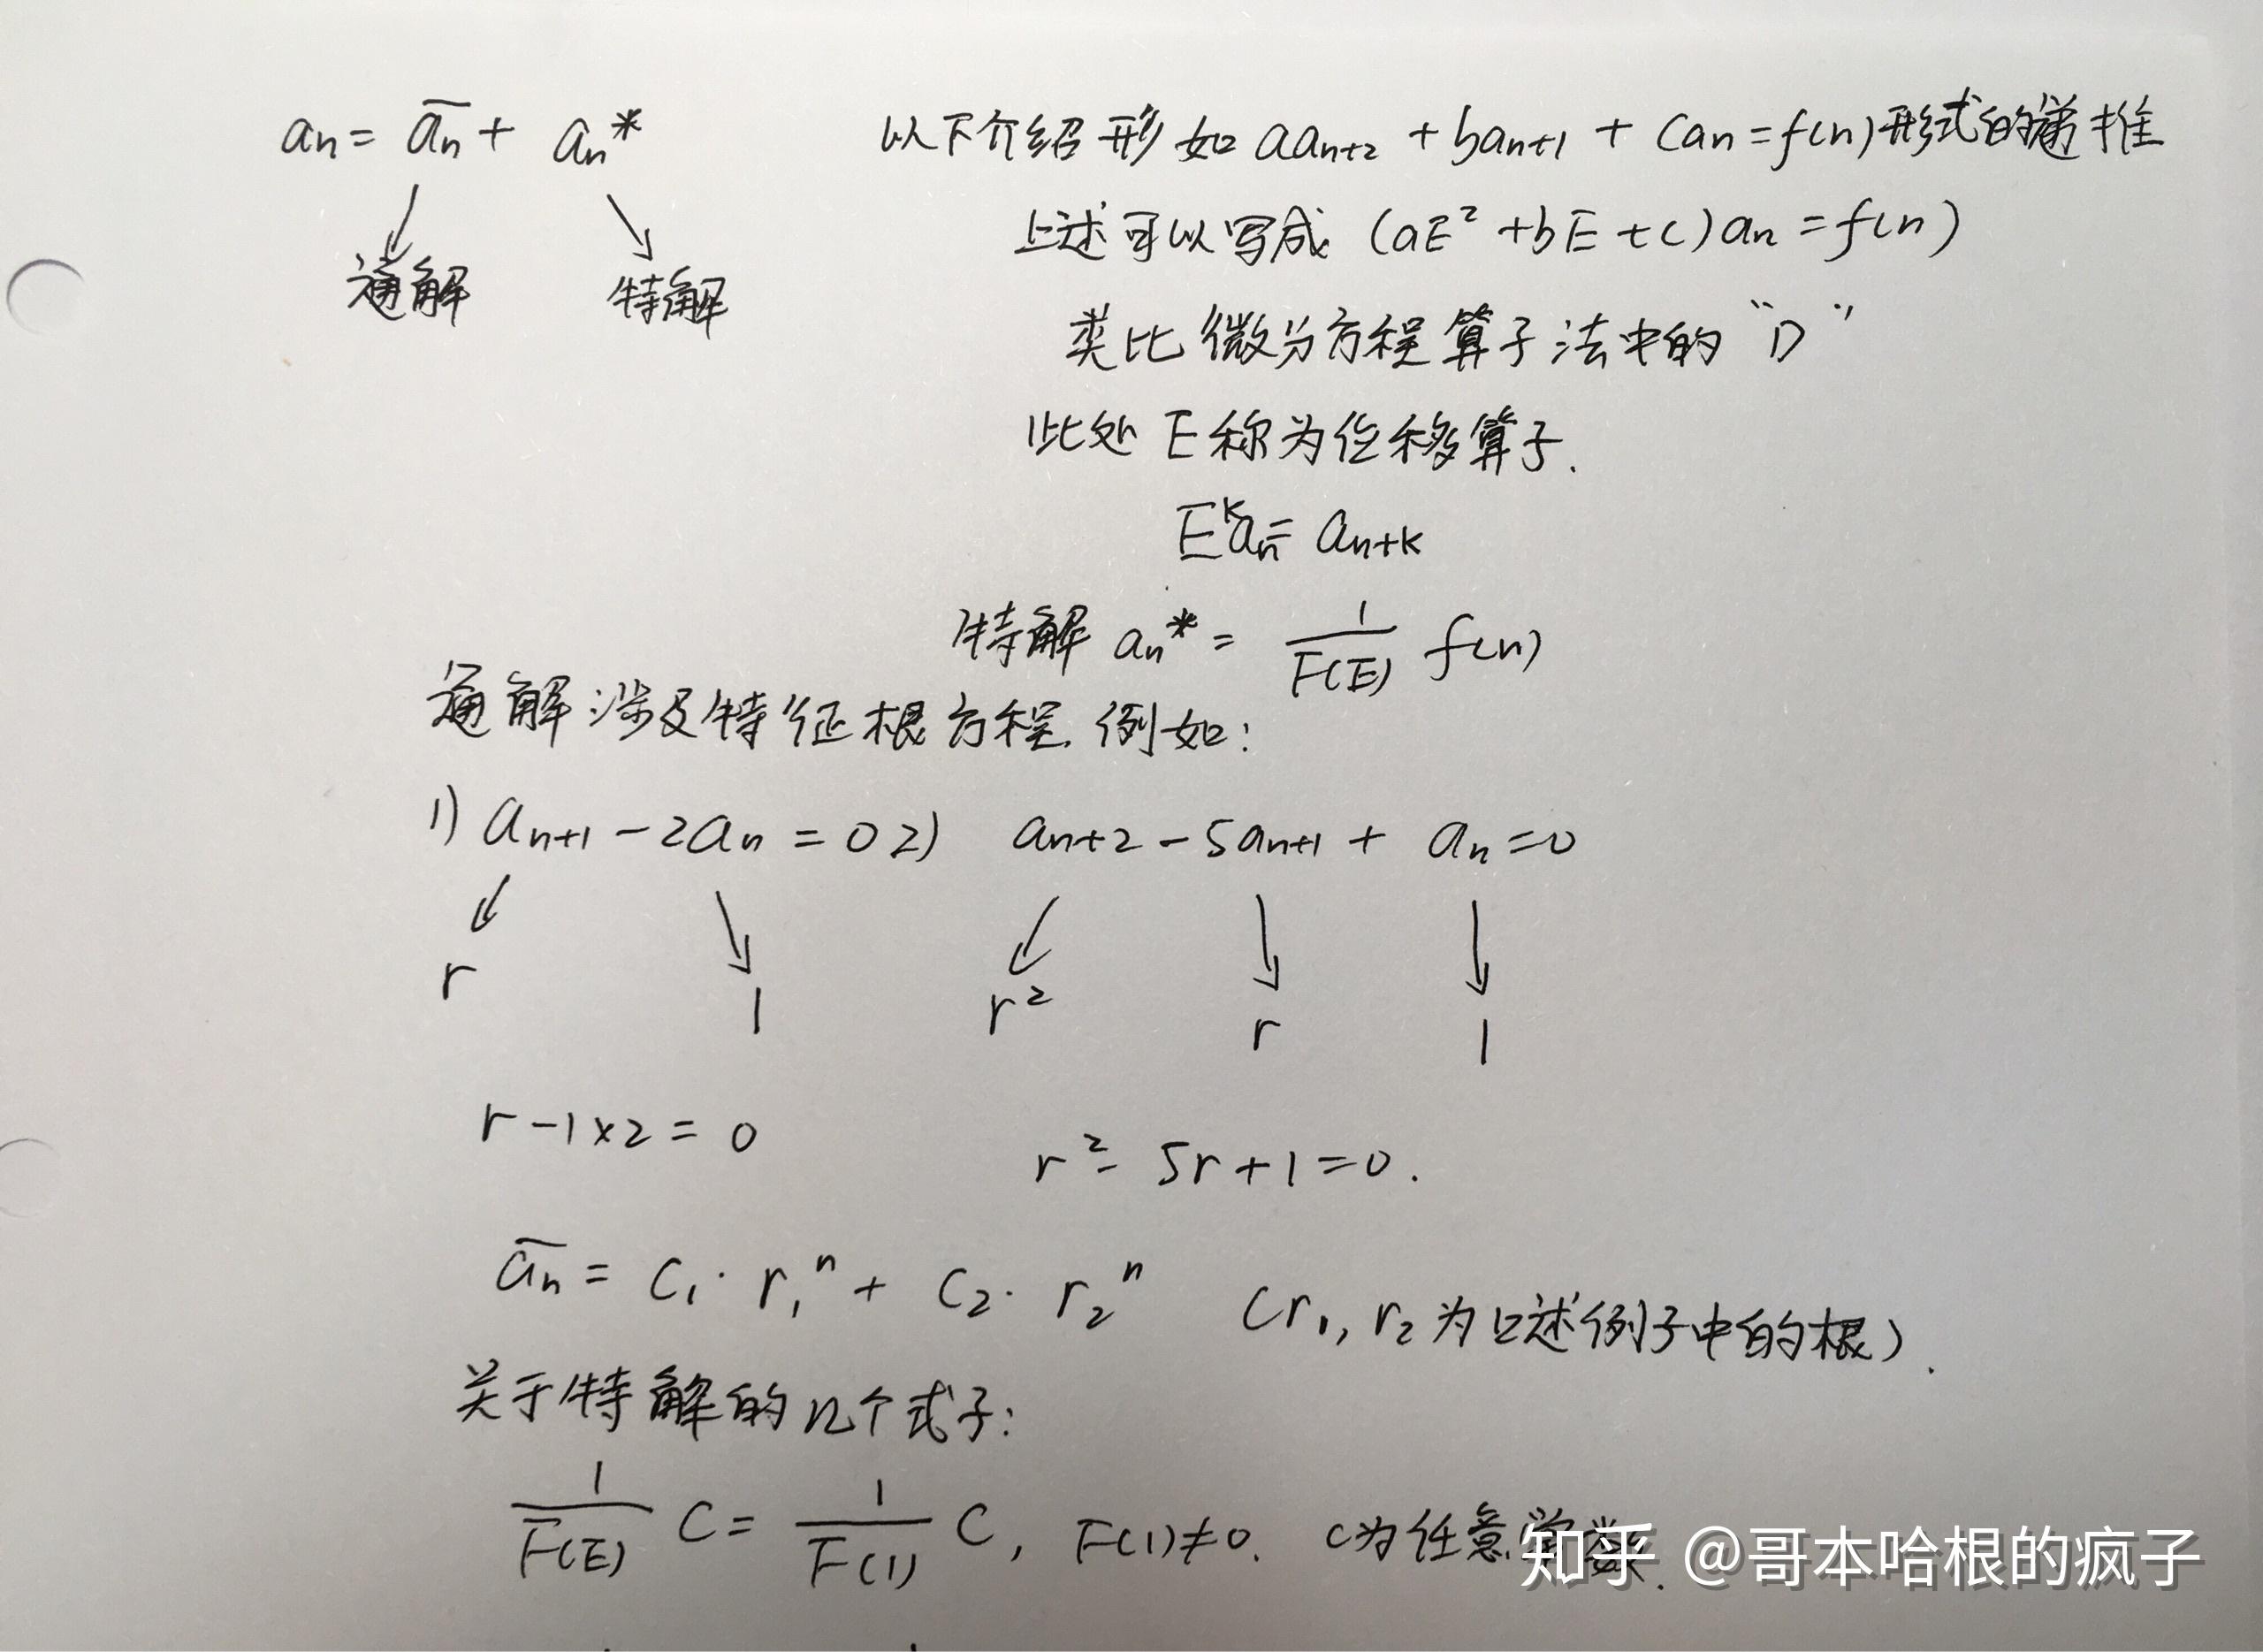 an = \overline{an} + an*
通解 特解
以下介绍形如 aan+2 + ban+1 + can = f(n) 形式的递推
上述可以写成 (aE² + bE + c) an = f(n)
类比微分方程算子法中的“D”
此处E称为位移算子.
E^k an = an+k
特解 an* = 1/F(E) f(n)
通解涉及特征根方程. 例如:
1) an+1 - 2an = 0 2) an+2 - 5an+1 + an = 0
r 1 r² r 1
r - 1×2 = 0
r² - 5r + 1 = 0.
\overline{an} = C1· r1^n + C2· r2^n (r1, r2 为上述例子中的根).
关于特解的几个式子:
1/F(E) C = 1/F(1) C, F(1)≠0. C为任意常数.
知乎 @哥本哈根的疯子